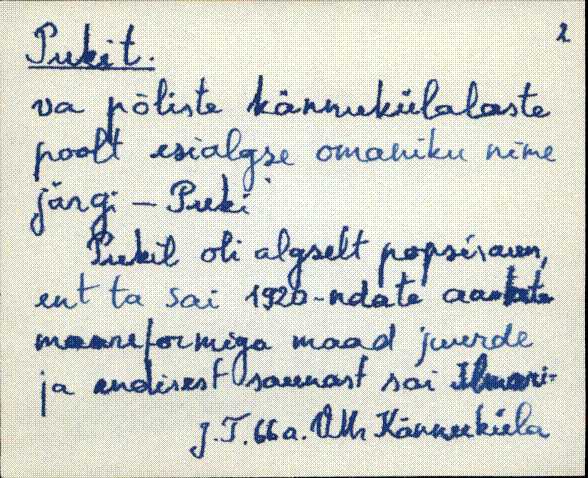 2
Pukit.
va põliste kännukülalaste
poolt esialgse omaniku nime
järgi – Puki
Pukil oli algselt popsisaun,
ent ta sai 1920-ndate aastate
maareformiga maad juurde
ja endisest saunast sai Ilmari-
J.T. 66 a. VMr Kännuküla